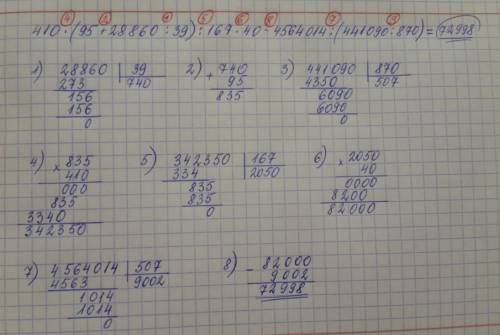 ④ ② ① ⑤ ⑥ ⑧ ⑦ ③
410 · (95 + 28860 : 39) : 167 · 40 - 4564014 : (441090 : 870) = 72998
1) 28860 | 39
273 740
156
156
0
2) + 740
95
835
3) 441090 | 870
4350 507
6090
6090
0
4) × 835
410
000
835
3340
342350
5) 342350 | 167
334 2050
835
835
0
6) × 2050
40
0000
8200
82000
7) 4564014 | 507
4563 9002
1014
1014
0
8) - 82000
9002
72998